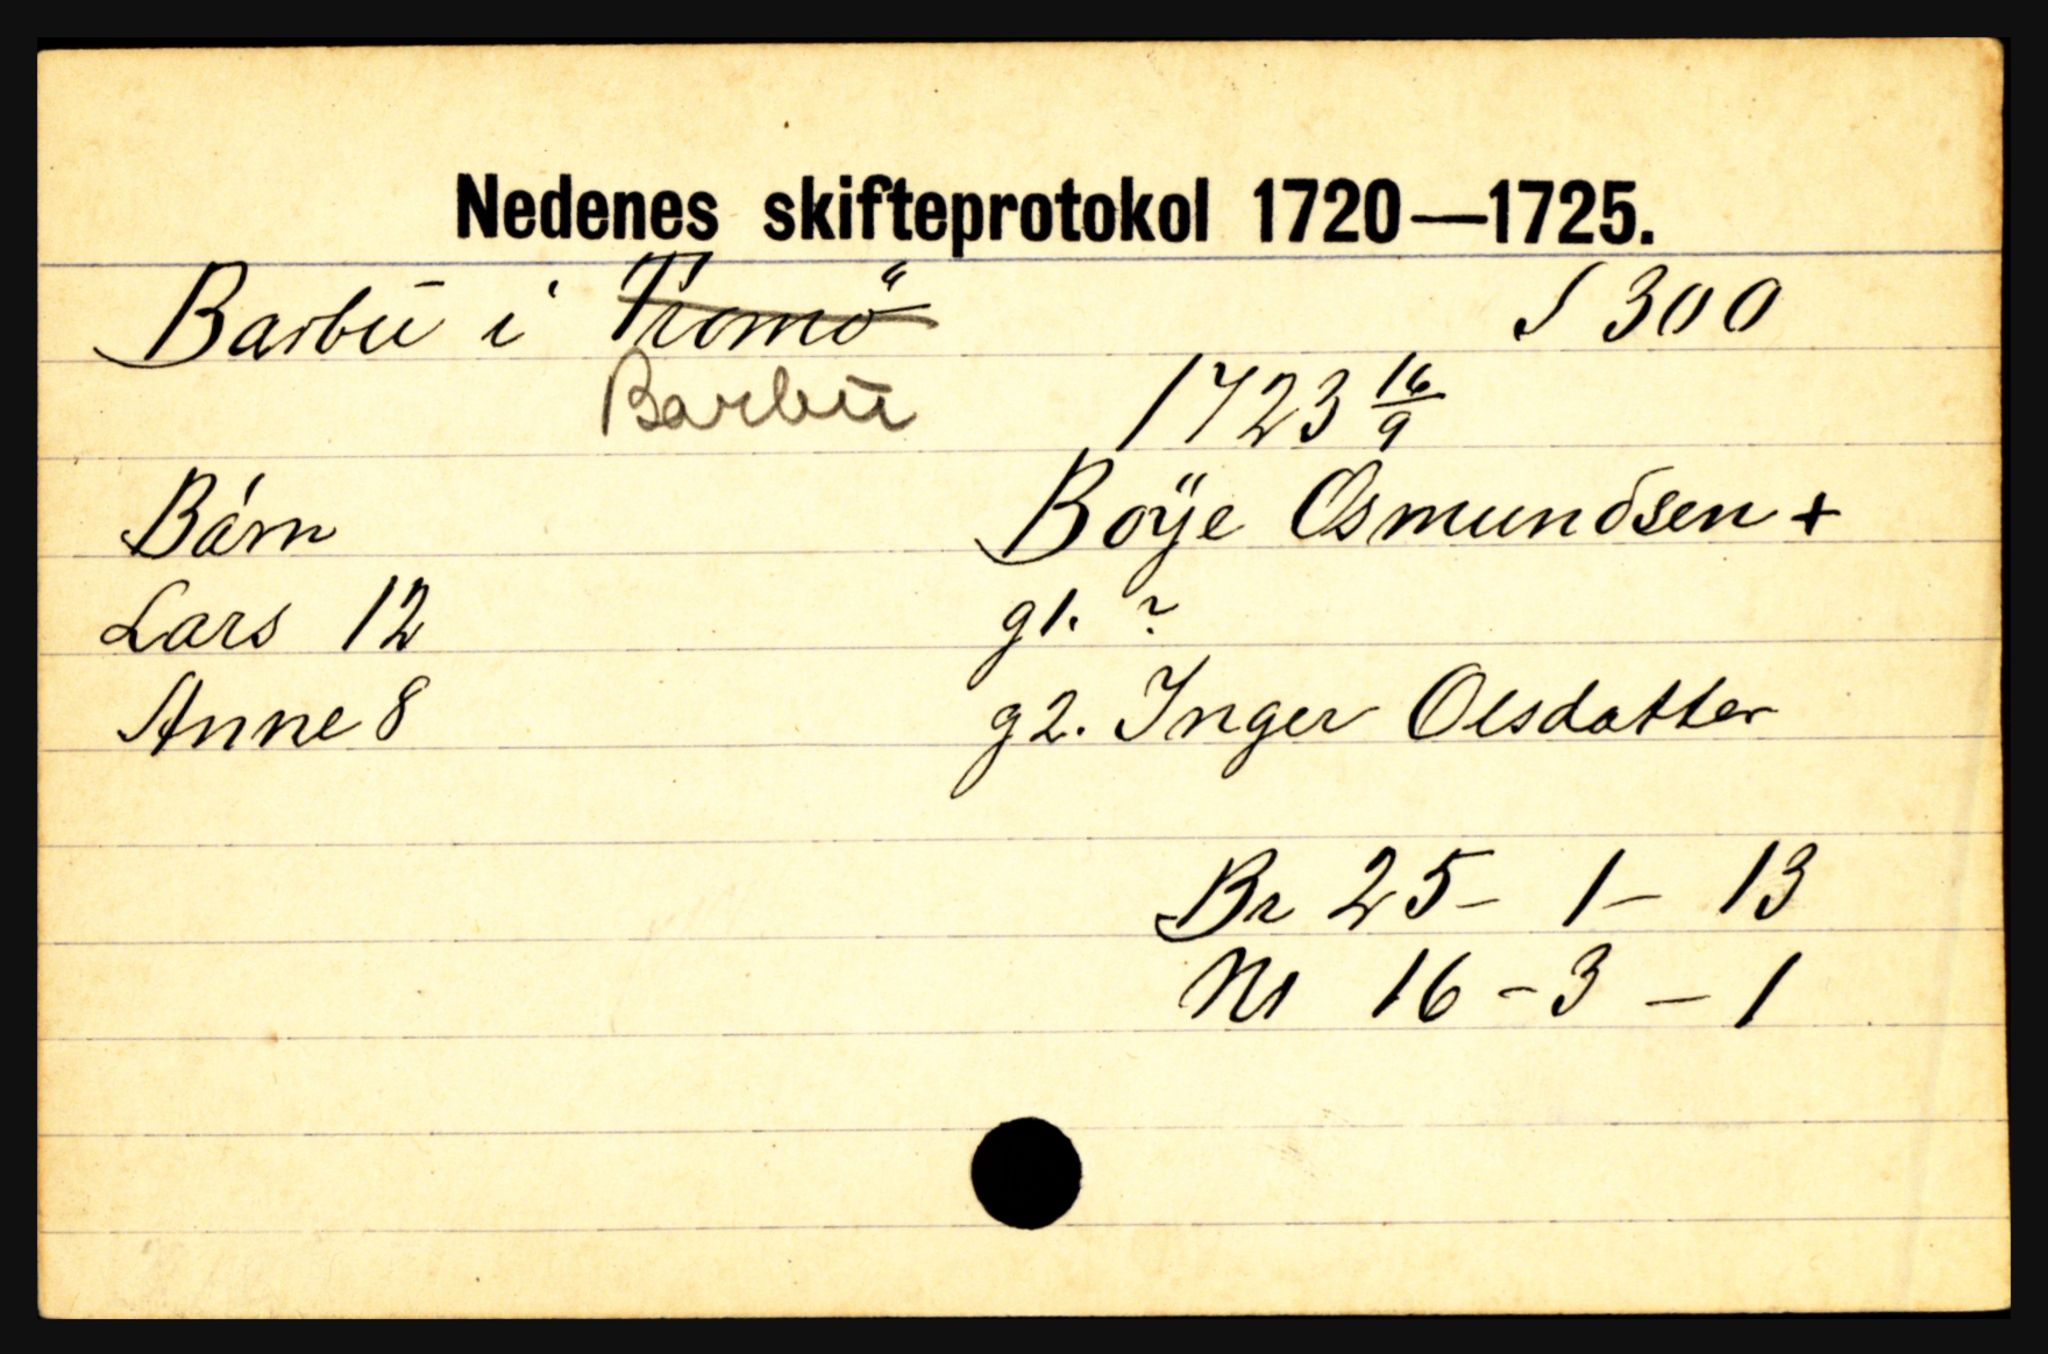 Nedenes skifteprotokol 1720—1725.
Barbu i Tromö S 300
Barbu 1723 16/9
Börn Böÿe Osmundsen +
Lars 12 g1. ?
Anne 8 g2. Inger Olsdatter
Br 25 - 1 - 13
Nt 16 - 3 - 1